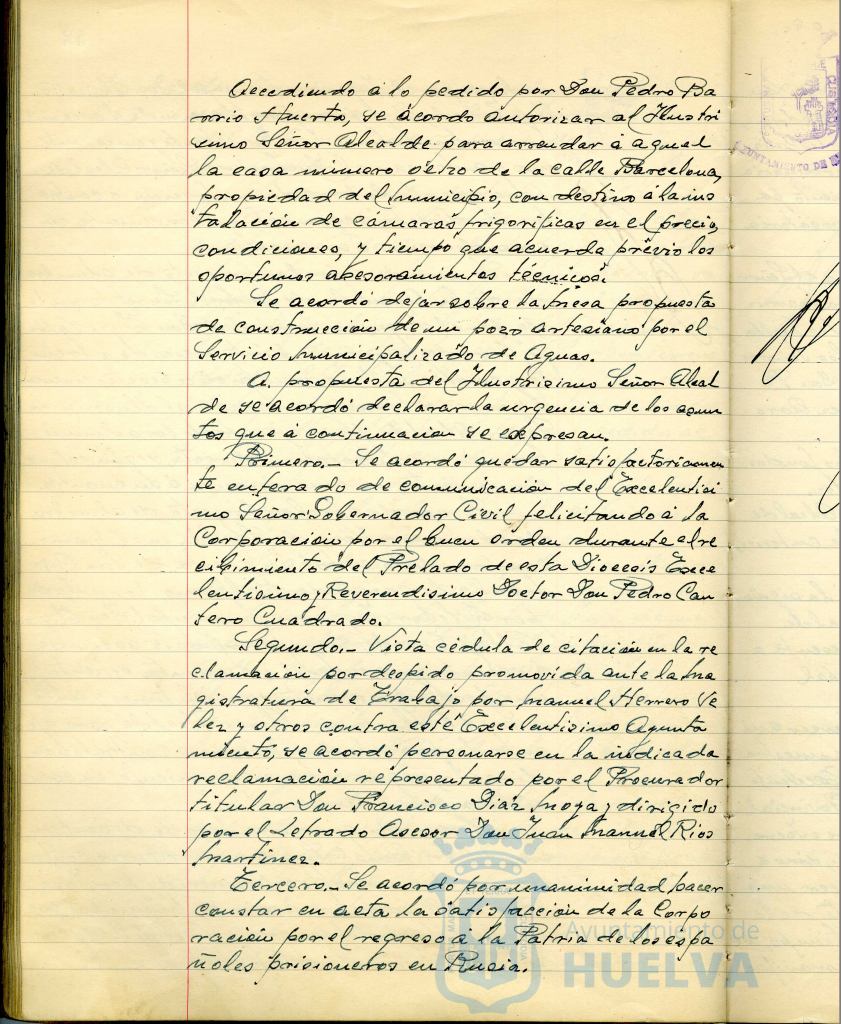 Accediendo á lo pedido por Don Pedro Ba
rrio Huerto, se acordó autorizar al Ilustrí
simo Señor Alcalde para arrendar á aquel
la casa número ocho de la calle Barcelona,
propiedad del Municipio, con destino á la ins
talación de cámaras frigoríficas en el precio,
condiciones, y tiempo que acuerda previo los
oportunos asesoramientos técnicos.
Se acordó dejar sobre la Mesa propuesta
de construcción de un pozo artesiano por el
Servicio Municipalizado de Aguas.
A propuesta del Ilustrisimo Señor Alcal
de se acordó declarar la urgencia de los asun
tos que á continuación se expresan.
Primero.- Se acordó quedar satisfactoriamen
te enterado de comunicación del Excelentísi
mo Señor Gobernador Civil felicitando á la
Corporación por el buen orden durante el re
cibimiento del Prelado de esta Diocesis Exce
lentísimo y Reverendisimo Doctor Don Pedro Can
tero Cuadrado.
Segundo.- Vista cédula de citación en la re
clamación por despido promovida ante la Ma
gistratura de Trabajo por Manuel Herrero Ve
lez y otros contra este Excelentísimo Ayunta
miento, se acordó personarse en la indicada
reclamación representado por el Procurador
titular Don Francisco Diaz Moya y dirigido
por el Letrado Asesor Don Juan Manuel Rios
Martinez.
Tercero.- Se acordó por unanimidad hacer
constar en acta la satisfacción de la Corpo
ración por el regreso á la Patria de los espa
ñoles prisioneros en Rusia.
Ayuntamiento de
HUELVA